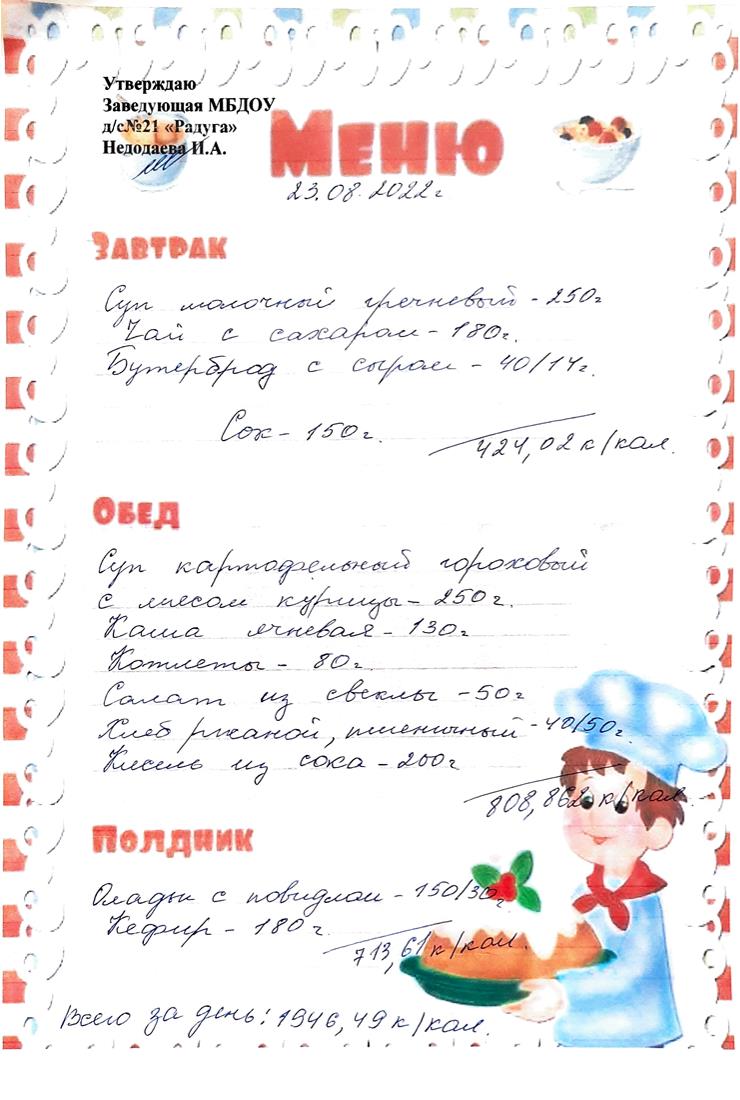 Утверждаю
Заведующая МБДОУ
д/с№21 «Радуга»
Недодаева И.А.
Меню
23.08.2022г
Завтрак
Суп молочный гречневый - 250г
Чай с сахаром - 180г.
Бутерброд с сыром - 40/14г.
Сок - 150г.
424,02 к/кал.
Обед
Суп картофельный гороховый
с мясом курицы - 250г.
Каша ячневая - 130г
Котлеты - 80г.
Салат из свеклы - 50г
Хлеб ржаной, пшеничный - 40/50г.
Кисель из сока - 200г
808,862 к/кал.
Полдник
Оладьи с повидлом - 150/30г
Кефир - 180г.
713,61 к/кал.
Всего за день: 1946,49 к/кал.